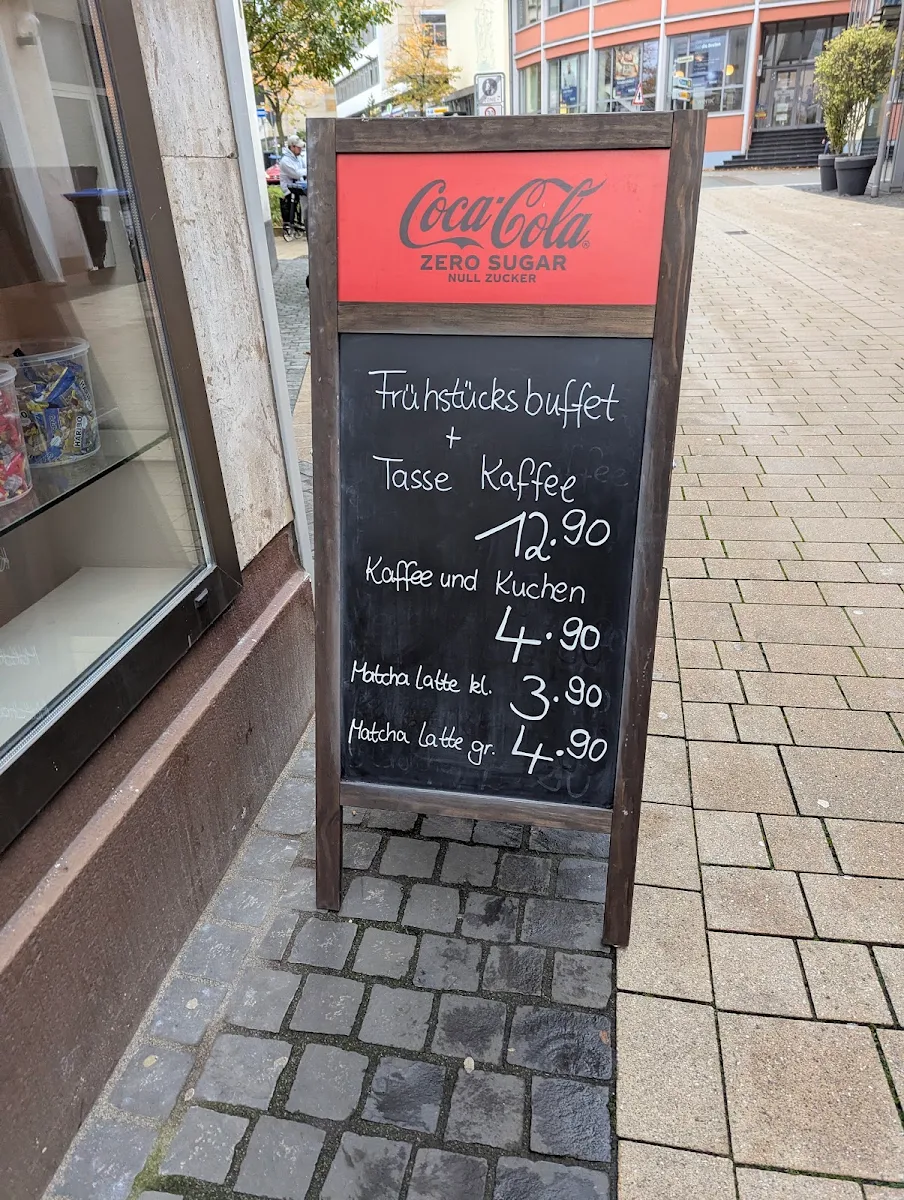 Coca-Cola
ZERO SUGAR
NULL ZUCKER
Frühstücksbuffet
+
Tasse Kaffee
12.90
Kaffee und Kuchen
4.90
Matcha Latte kl. 3.90
Matcha Latte gr. 4.90
HARIBO